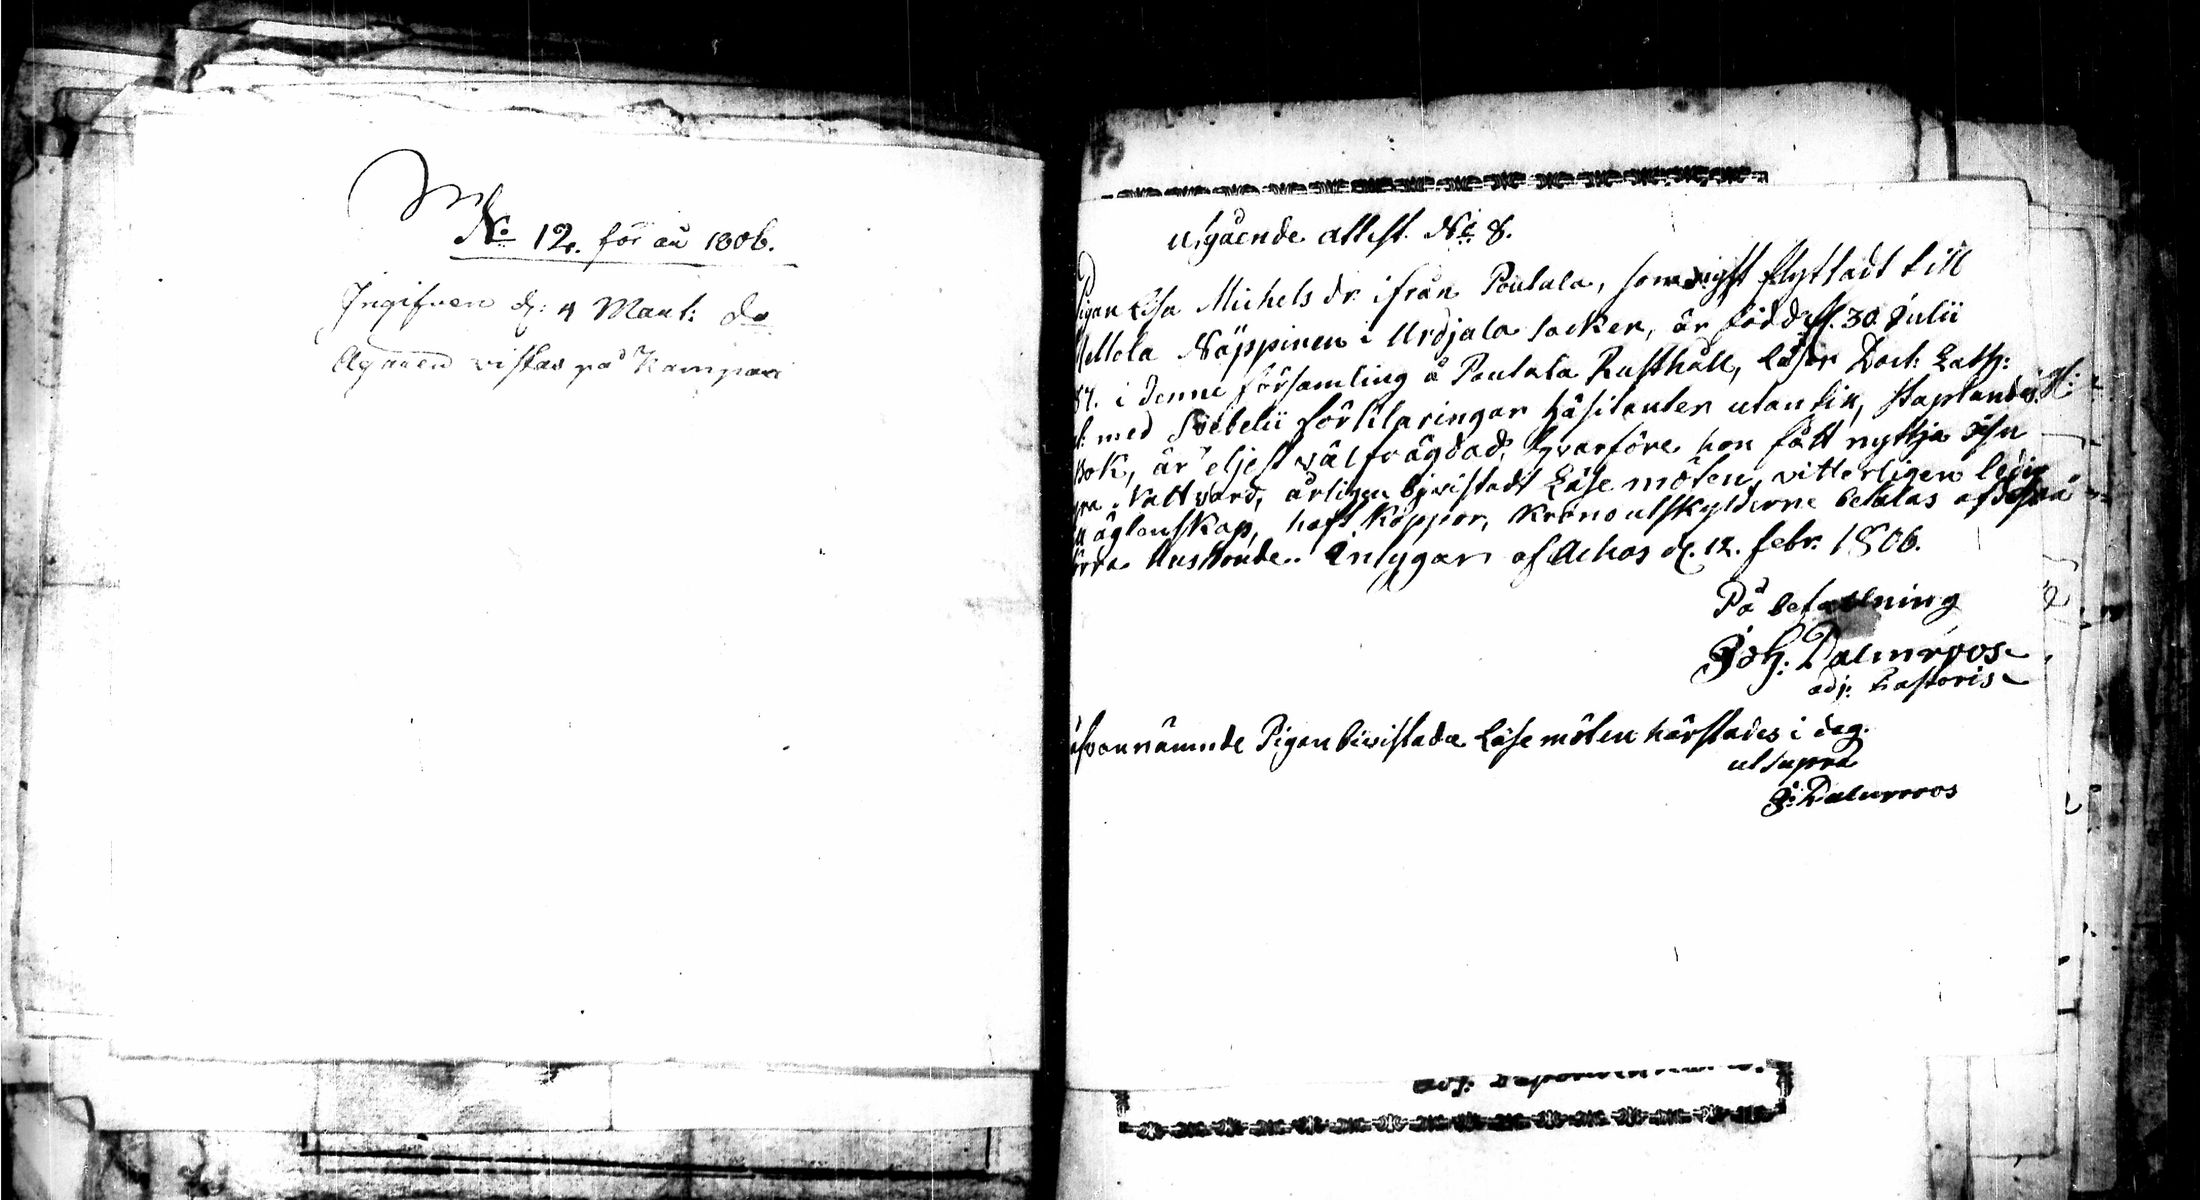 No 12. för år 1806.
Ingifven d: 4 Mart:
Ägaren vistas på Kampari
Utgående attest. No 8.
Pigan Lisa Michels dr ifrån Poutala, som flyttadt till
Mellola Näppinen i Urdjala Socken, är född d. 30 Julii
87. i denne församling å Poutala Rusthåll, läser Doct. Luth:
med Svebelii förklaringar häsitanter utan till, staplandes
Bok, är eljest välfrägdad, hvarföre hon fått nyttja sin
Nattvard, årligen bevistadt Läse möten, vitterligen ledig
ägtenskap, haft koppor, krono utskylderne betalas af dess
Husbonde. Intygar af Achas d. 12. febr. 1806.
På befallning
Joh. Dalmroos
adj: Pastoris
ofvannämnde Pigan bevistade Läse möten härstädes i dag.
ut supra
J: Dalmroos